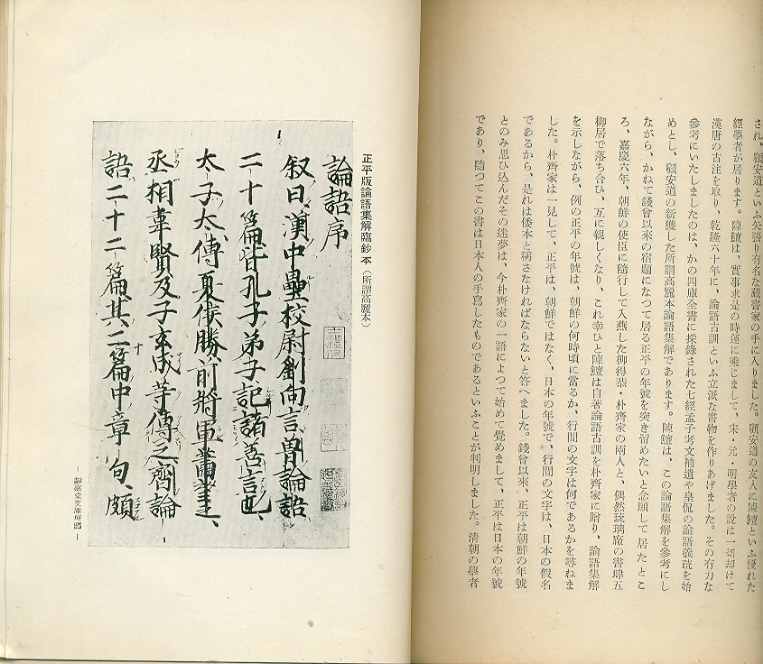 され、顧安道といふ矢張り有名な藏書家の手に入りました。顧安道の友人に陳鱣といふ優れた
經學者が居ります。陳鱣は、實事求是の時運に乘じまして、宋・元・明學者の說は一切却けて
漢唐の古注を取り、乾隆六十年に、論語古訓といふ立派な書物を作りあげました。その有力な
參考にいたしましたのは、かの四庫全書に採錄された七經孟子考文補遺や皇侃の論語義疏を始
めとし、顧安道の新獲した所謂高麗本論語集解であります。陳鱣は、この論語集解を參考にし
ながら、かねて錢曾以來の宿題になつて居る正平の年號を突き留めたいと念願して居たとこ
ろ、嘉慶六年、朝鮮の使臣に隨行して入燕した柳得恭・朴齊家の兩人と、偶然琉璃廠の書肆五
柳居で落ち合ひ、互に親しくなり、これ幸ひと陳鱣は自著論語古訓を朴齊家に贈り、論語集解
を示しながら、例の正平の年號は、朝鮮の何時頃に當るか、行間の文字は何であるかを尋ねま
した。朴齊家は一見して、正平は、朝鮮ではなく、日本の年號で、行間の文字は、日本の假名
であるから、是れは倭本と稱さなければならないと答へました。錢曾以來、正平は朝鮮の年號
とのみ思ひ込んだその迷夢は、今朴齊家の一語によつて始めて覺めまして、正平は日本の年號
であり、隨つてこの書は日本人の手寫したものであるといふことが判明しました。清朝の學者
正平版論語集解臨鈔本（所謂高麗本）
論語序
叙曰漢中壘校尉劉向言魯論語
二十篇皆孔子弟子記諸善言也、
太子太傅夏侯勝、前將軍蕭望之、
丞相韋賢及子玄成等傳之齊論
語二十二篇其二篇中章句頗
—靜嘉堂文庫所藏—